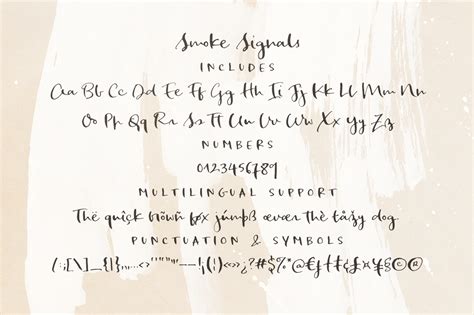 Smoke Signals
INCLUDES
Aa Bb Cc Dd Ee Ff Gg Hh Ii Jj Kk Ll Mm Nn
Oo Pp Qq Rr Ss Tt Uu Vv Ww Xx Yy Zz
NUMBERS
0123456789
MULTILINGUAL SUPPORT
Thë quîçk bröwñ føx júmpß œvær thè låžÿ dog.
PUNCTUATION & SYMBOLS
?#$%*@